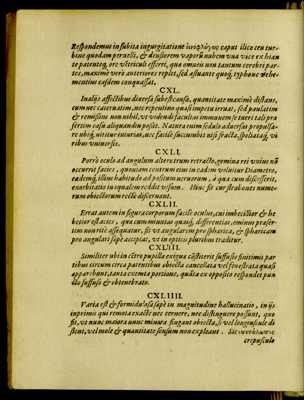 Respondemus in subita ingurgitatione caput illico ceu tur-
bine quodam percelli, & densiorem vaporū nubem vna vice ex hian
te patenteq́; ore vtriculi efferri, qua omneis non tantum cerebri par-
tes, maximè verò anteriores replet, sed æstuante quoq́; typhone vehe-
mentius easdem conquassat.
CXL.
In alijs affectibus diuersa subest causa, quantitate maximè distans,
cum nec cateruatim, nec repentino quasi impetu irruat, sed paulatim
& remisse non nihil, vt videndi facultas immunem se tueri talis præ
sertim casu aliquandiu possit. Natura enim sedulo aduersus propulsa-
re ubiq́; nititur iniurias, nec facilè succumbit nisi fracta, spoliataq́; vi
ribus vniuersis.
CXLI.
Porrò oculo ad angulum alterutrum retracto, gemina rei vnius nō
occurrit facies, quoniam centrum eius in eadem voluitur Diametro,
eademq́; illum habitudo ad positum intuetur, à qua cum discesserit,
exorbitatio inæqualem reddit visum. Hinc fit cur strabones nume-
rum obiectorum rectè discernant.
CXLII.
Errat autem in figura corporum facilè oculus, cui imbecillior & he
betior est acies, qua cum minutias quasq́; differentias, eminus præser-
tim non ritè assequatur, fit vt angularem pro sphærica, & sphæricam
pro angulari sæpè accipiat, vt in opticis pluribus traditur.
CXLIII.
Similiter vbi in cētro pupillæ exigua cōstiterit suffusio finitimis par
tibus circum circa patentibus obiecta cancellata vel fenestrata quasi
apparebunt, tanta exempta portione, quāta ex opposito respondet pun
cto suffuso & obtenebrato.
CXLIIII.
Varia est & formidolosa sæpè in magnitudine hallucinatio, in ijs
inprimis qui remota exactè nec cernere, nec distinguere possunt, quo
fit, vt nunc maiora nunc minora fingant obiecta, si vel lineguscule di-
stent, vel mole & quantitate sensum non expleant. Sic
crepusculo